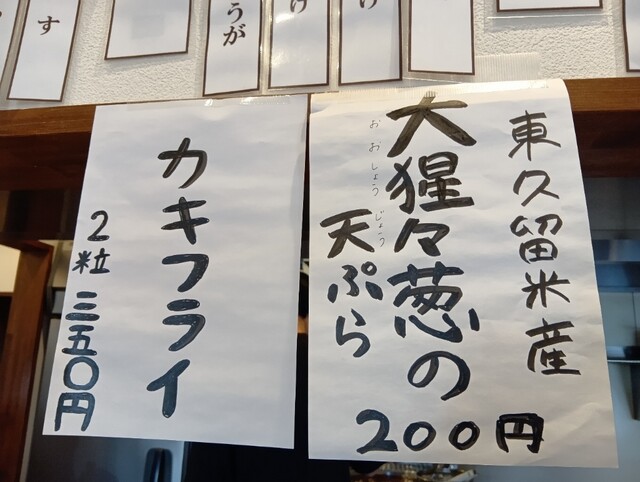 東久留米産
大猩々葱の
おおしょうじょう
天ぷら
200円
カキフライ
2粒 三五〇円
け
け
うが
す